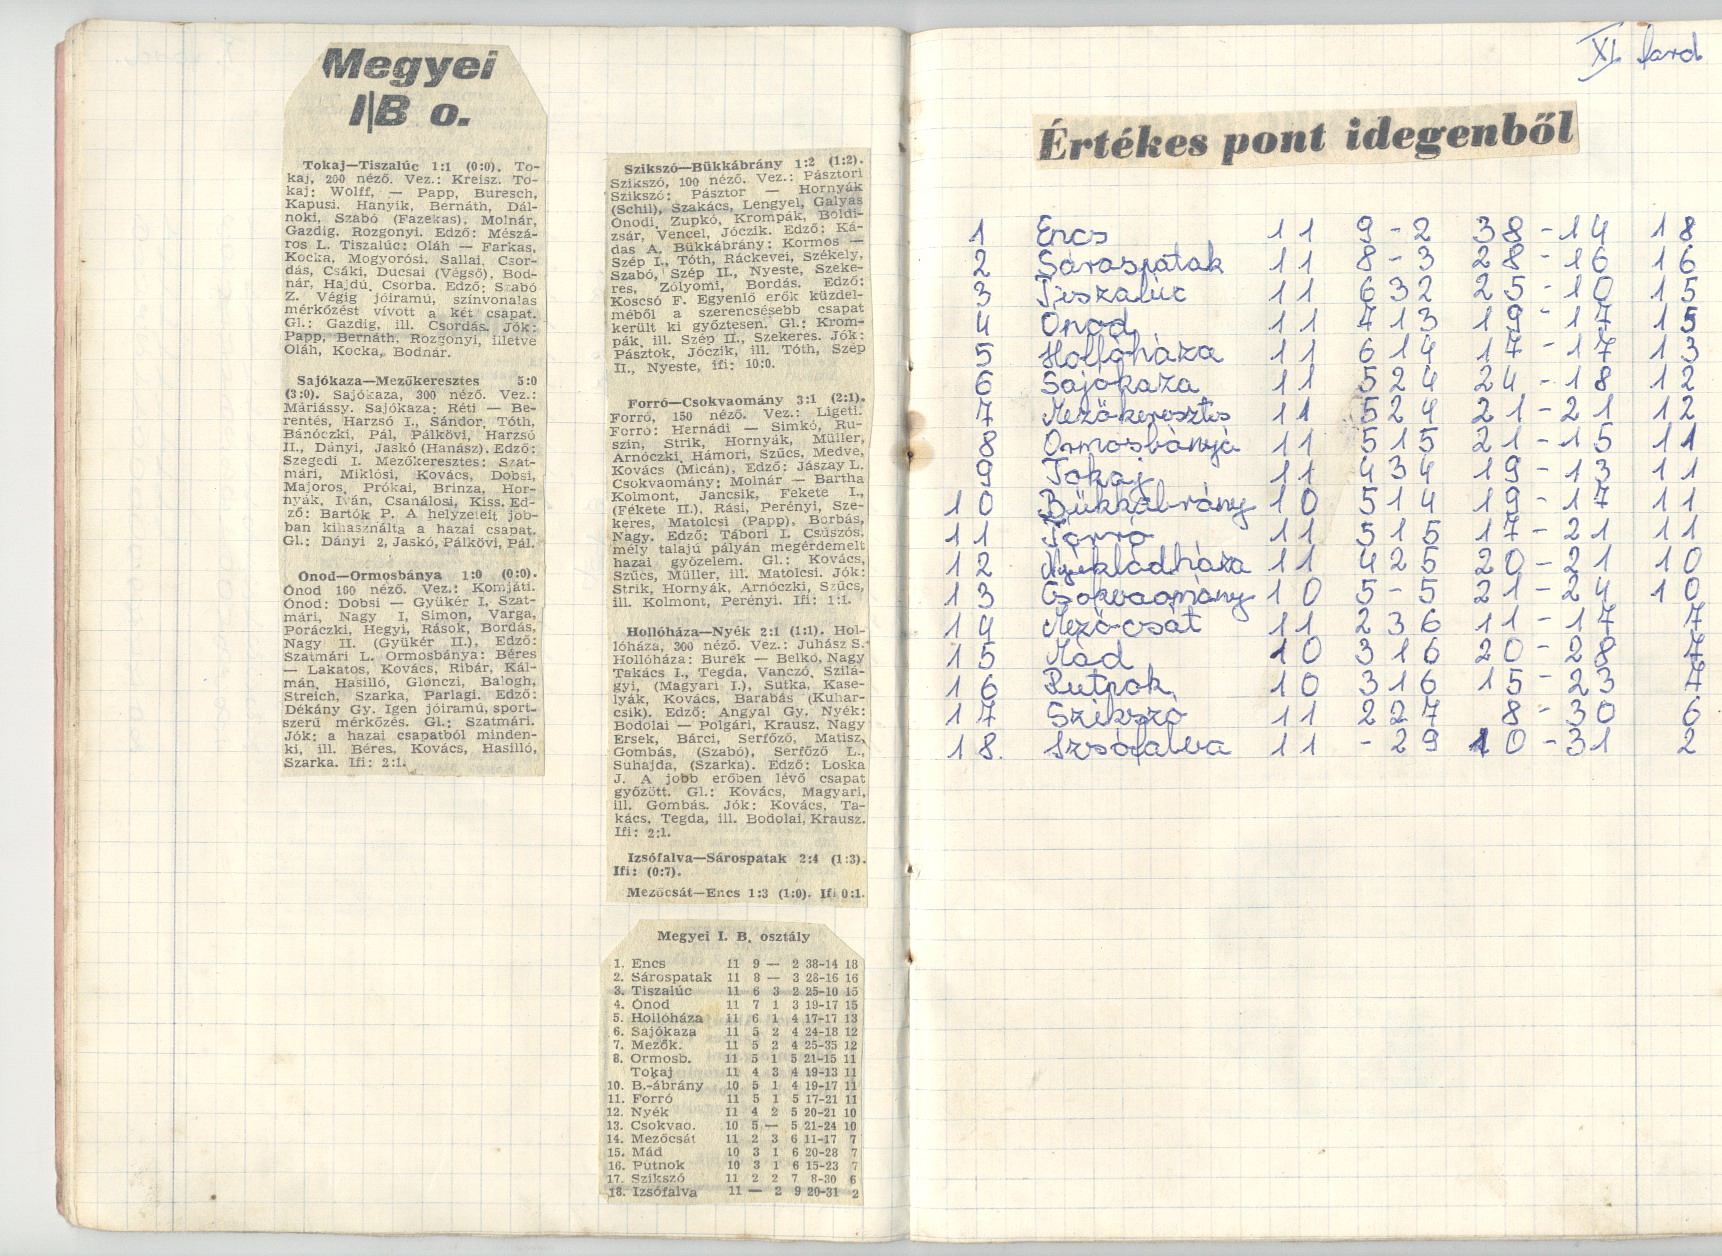 Megyei
I/B o.
Tokaj—Tiszalúc 1:1 (0:0). To-
kaj, 200 néző. Vez.: Kreisz. To-
kaj: Wolff, — Papp, Buresch,
Kapusi. Hanyik, Bernáth, Dál-
noki, Szabó (Fazekas), Molnár,
Gazdig, Rozgonyi. Edző: Mészá-
ros L. Tiszalúc: Oláh — Farkas,
Kocka, Mogyorósi, Sallai, Csor-
dás, Csáki, Ducsai (Végső), Bod-
nár, Hajdú, Csorba. Edző: Szabó
Z. Végig jóiramú, színvonalas
mérkőzést vívott a két csapat.
Gl.: Gazdig, ill. Csordás. Jók:
Papp, Bernáth, Rozgonyi, illetve
Oláh, Kocka, Bodnár.
Sajókaza—Mezőkeresztes 5:0
(3:0). Sajókaza, 300 néző. Vez.:
Máriássy. Sajókaza: Réti — Be-
rentés, Harzsó I., Sándor, Tóth,
Bánóczki, Pál, Pálkövi, Harzsó
II., Dányi, Jaskó (Hanász). Edző:
Szegedi I. Mezőkeresztes: Szat-
mári, Miklósi, Kovács, Dobsi,
Majoros, Prókai, Brinza, Hor-
nyák, Iván, Csanálosi, Kiss. Ed-
ző: Bartók P. A helyzeteit job-
ban kihasználta a hazai csapat.
Gl.: Dányi 2, Jaskó, Pálkövi, Pál.
Ónod—Ormosbánya 1:0 (0:0).
Ónod 100 néző. Vez.: Komjáti.
Ónod: Dobsi — Gyükér I., Szat-
mári, Nagy I, Simon, Varga,
Poráczki, Hegyi, Rások, Bordás,
Nagy II. (Gyükér II.), Edző:
Szatmári L. Ormosbánya: Béres
— Lakatos, Kovács, Ribár, Kál-
mán, Hasilló, Glonczi, Balogh,
Streich, Szarka, Parlagi. Edző:
Dékány Gy. Igen jóiramú, sport-
szerű mérkőzés. Gl.: Szatmári.
Jók: a hazai csapatból minden-
ki, ill. Béres, Kovács, Hasilló,
Szarka. Ifi: 2:1.
Szikszó—Bükkábrány 1:2 (1:2).
Szikszó, 100 néző. Vez.: Pásztori
Szikszó: Pásztor — Hornyák
(Schil), Szakács, Lengyel, Galyas
Ónodi, Zupkó, Krompák, Boldi-
zsár, Vencel, Jóczik. Edző: Ká-
das A. Bükkábrány: Kormos —
Szép I., Tóth, Ráckevei, Székely,
Szabó, Szép II., Nyeste, Szeke-
res, Zólyomi, Bordás. Edző:
Koscsó F. Egyenlő erők küzdel-
méből a szerencsésebb csapat
került ki győztesen. Gl.: Krom-
pák, ill. Szép II., Szekeres. Jók:
Pásztok, Jóczik, ill. Tóth, Szép
II., Nyeste, ifi: 10:0.
Forró—Csokvaomány 3:1 (2:1).
Forró, 150 néző. Vez.: Ligeti.
Forró: Hernádi — Simkó, Ru-
szin, Strik, Hornyák, Müller,
Arnóczki, Hámori, Szűcs, Medve,
Kovács (Micán), Edző: Jászay L.
Csokvaomány: Molnár — Bartha
Kolmont, Jancsik, Fekete I.,
(Fékete II.), Rási, Perényi, Sze-
keres, Matolcsi (Papp), Borbás,
Nagy. Edző: Tábori I. Csúszós,
mély talajú pályán megérdemelt
hazai győzelem. Gl.: Kovács,
Szűcs, Müller, ill. Matolcsi. Jók:
Strik, Hornyák, Arnóczki, Szűcs,
ill. Kolmont, Perényi. Ifi: 1:1.
Hollóháza—Nyék 2:1 (1:1). Hol-
lóháza, 300 néző. Vez.: Juhász S.
Hollóháza: Burek — Belkó, Nagy
Takács I., Tegda, Vanczó, Szilá-
gyi, (Magyari I.), Sutka, Kase-
lyák, Kovács, Barabás (Kuhar-
csik). Edző: Angyal Gy. Nyék:
Bodolai — Polgári, Krausz, Nagy
Ersek, Bárci, Serfőző, Matisz,
Gombás, (Szabó), Serfőző L.,
Suhajda, (Szarka). Edző: Loska
J. A jobb erőben lévő csapat
győzött. Gl.: Kovács, Magyari,
ill. Gombás. Jók: Kovács, Ta-
kács, Tegda, ill. Bodolai, Krausz.
Ifi: 2:1.
Izsófalva—Sárospatak 2:4 (1:3).
Ifi: (0:7).
Mezőcsát—Encs 1:3 (1:0). Ifi 0:1.
Megyei I. B. osztály
1. Encs 11 9 — 2 38-14 18
2. Sárospatak 11 8 — 3 28-16 16
3. Tiszalúc 11 6 3 2 25-10 15
4. Ónod 11 7 1 3 19-17 15
5. Hollóháza 11 6 1 4 17-17 13
6. Sajókaza 11 5 2 4 24-18 12
7. Mezők. 11 5 2 4 25-35 12
8. Ormosb. 11 5 1 5 21-15 11
Tokaj 11 4 3 4 19-13 11
10. B.-ábrány 10 5 1 4 19-17 11
11. Forró 11 5 1 5 17-21 11
12. Nyék 11 4 2 5 20-21 10
13. Csokvao. 10 5 — 5 21-24 10
14. Mezőcsát 11 2 3 6 11-17 7
15. Mád 10 3 1 6 20-28 7
16. Putnok 10 3 1 6 15-23 7
17. Szikszó 11 2 2 7 8-30 6
18. Izsófalva 11 — 2 9 20-31 2
XI. ford
Értékes pont idegenből
1 Encs 11 9 - 2 38 - 14 18
2 Sárospatak 11 8 - 3 28 - 16 16
3 Tiszalúc 11 6 3 2 25 - 10 15
4 Ónod 11 7 1 3 19 - 17 15
5 Hollóháza 11 6 1 4 17 - 17 13
6 Sajókaza 11 5 2 4 24 - 18 12
7 Mezőkeresztes 11 5 2 4 21 - 21 12
8 Ormosbánya 11 5 1 5 21 - 15 11
9 Tokaj 11 4 3 4 19 - 13 11
10 Bükkábrány 10 5 1 4 19 - 17 11
11 Forró 11 5 1 5 17 - 21 11
12 Nyékládháza 11 4 2 5 20 - 21 10
13 Csokvaomány 10 5 - 5 21 - 24 10
14 Mezőcsát 11 2 3 6 11 - 17 7
15 Mád 10 3 1 6 20 - 28 7
16 Putnok 10 3 1 6 15 - 23 7
17 Szikszó 11 2 2 7 8 - 30 6
18. Izsófalva 11 - 2 9 10 - 31 2